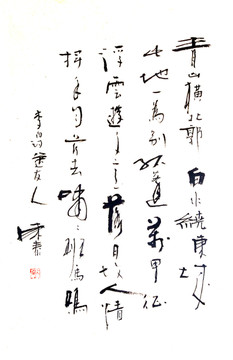 青山橫北郭 白水繞東城
此地一為別 孤蓬萬里征
浮雲遊子意 落日故人情
揮手自茲去 蕭〻班馬鳴
李白送友人